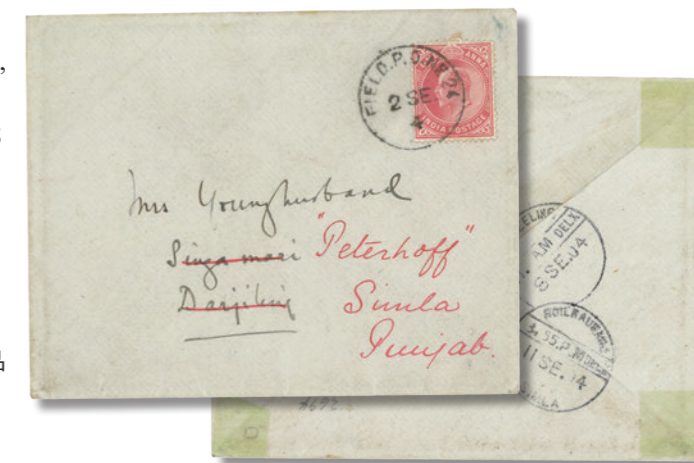 FIELD.P.O.Nº 24
2 SE.
4
ANNA
INDIA POSTAGE
Mrs Younghusband
Singamari "Peterhoff"
Darjiling Simla
Punjab.
A.M DELY
8 SE.04
3.55.P.M
11 SE. 14
A692
品